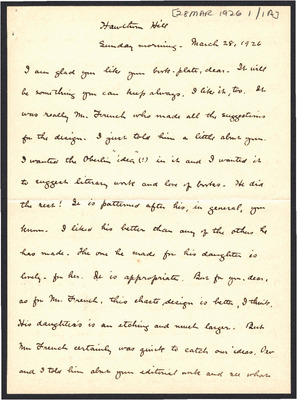 [28 MAR 1926 1/1A]
Hawthorn Hill
Sunday morning. March 28, 1926
I am glad you like your book-plate, dear. It will
be something you can keep always. I like it, too. It
was really Mr. French who made all the suggestions
for the design. I just told him a little about you.
I wanted the Oberlin "idea" (!) in it and I wanted it
to suggest literary work and love of books. He did
the rest! It is patterned after his, in general, you
know. I liked his better than any of the others he
has made. The one he made for his daughter is
lovely - for her. It is appropriate. But for you, dear,
as for Mr. French, this chaste design is better, I think.
His daughter's is an etching and much larger. But
Mr French certainly was quick to catch our ideas.
and I told him about your editorial work and